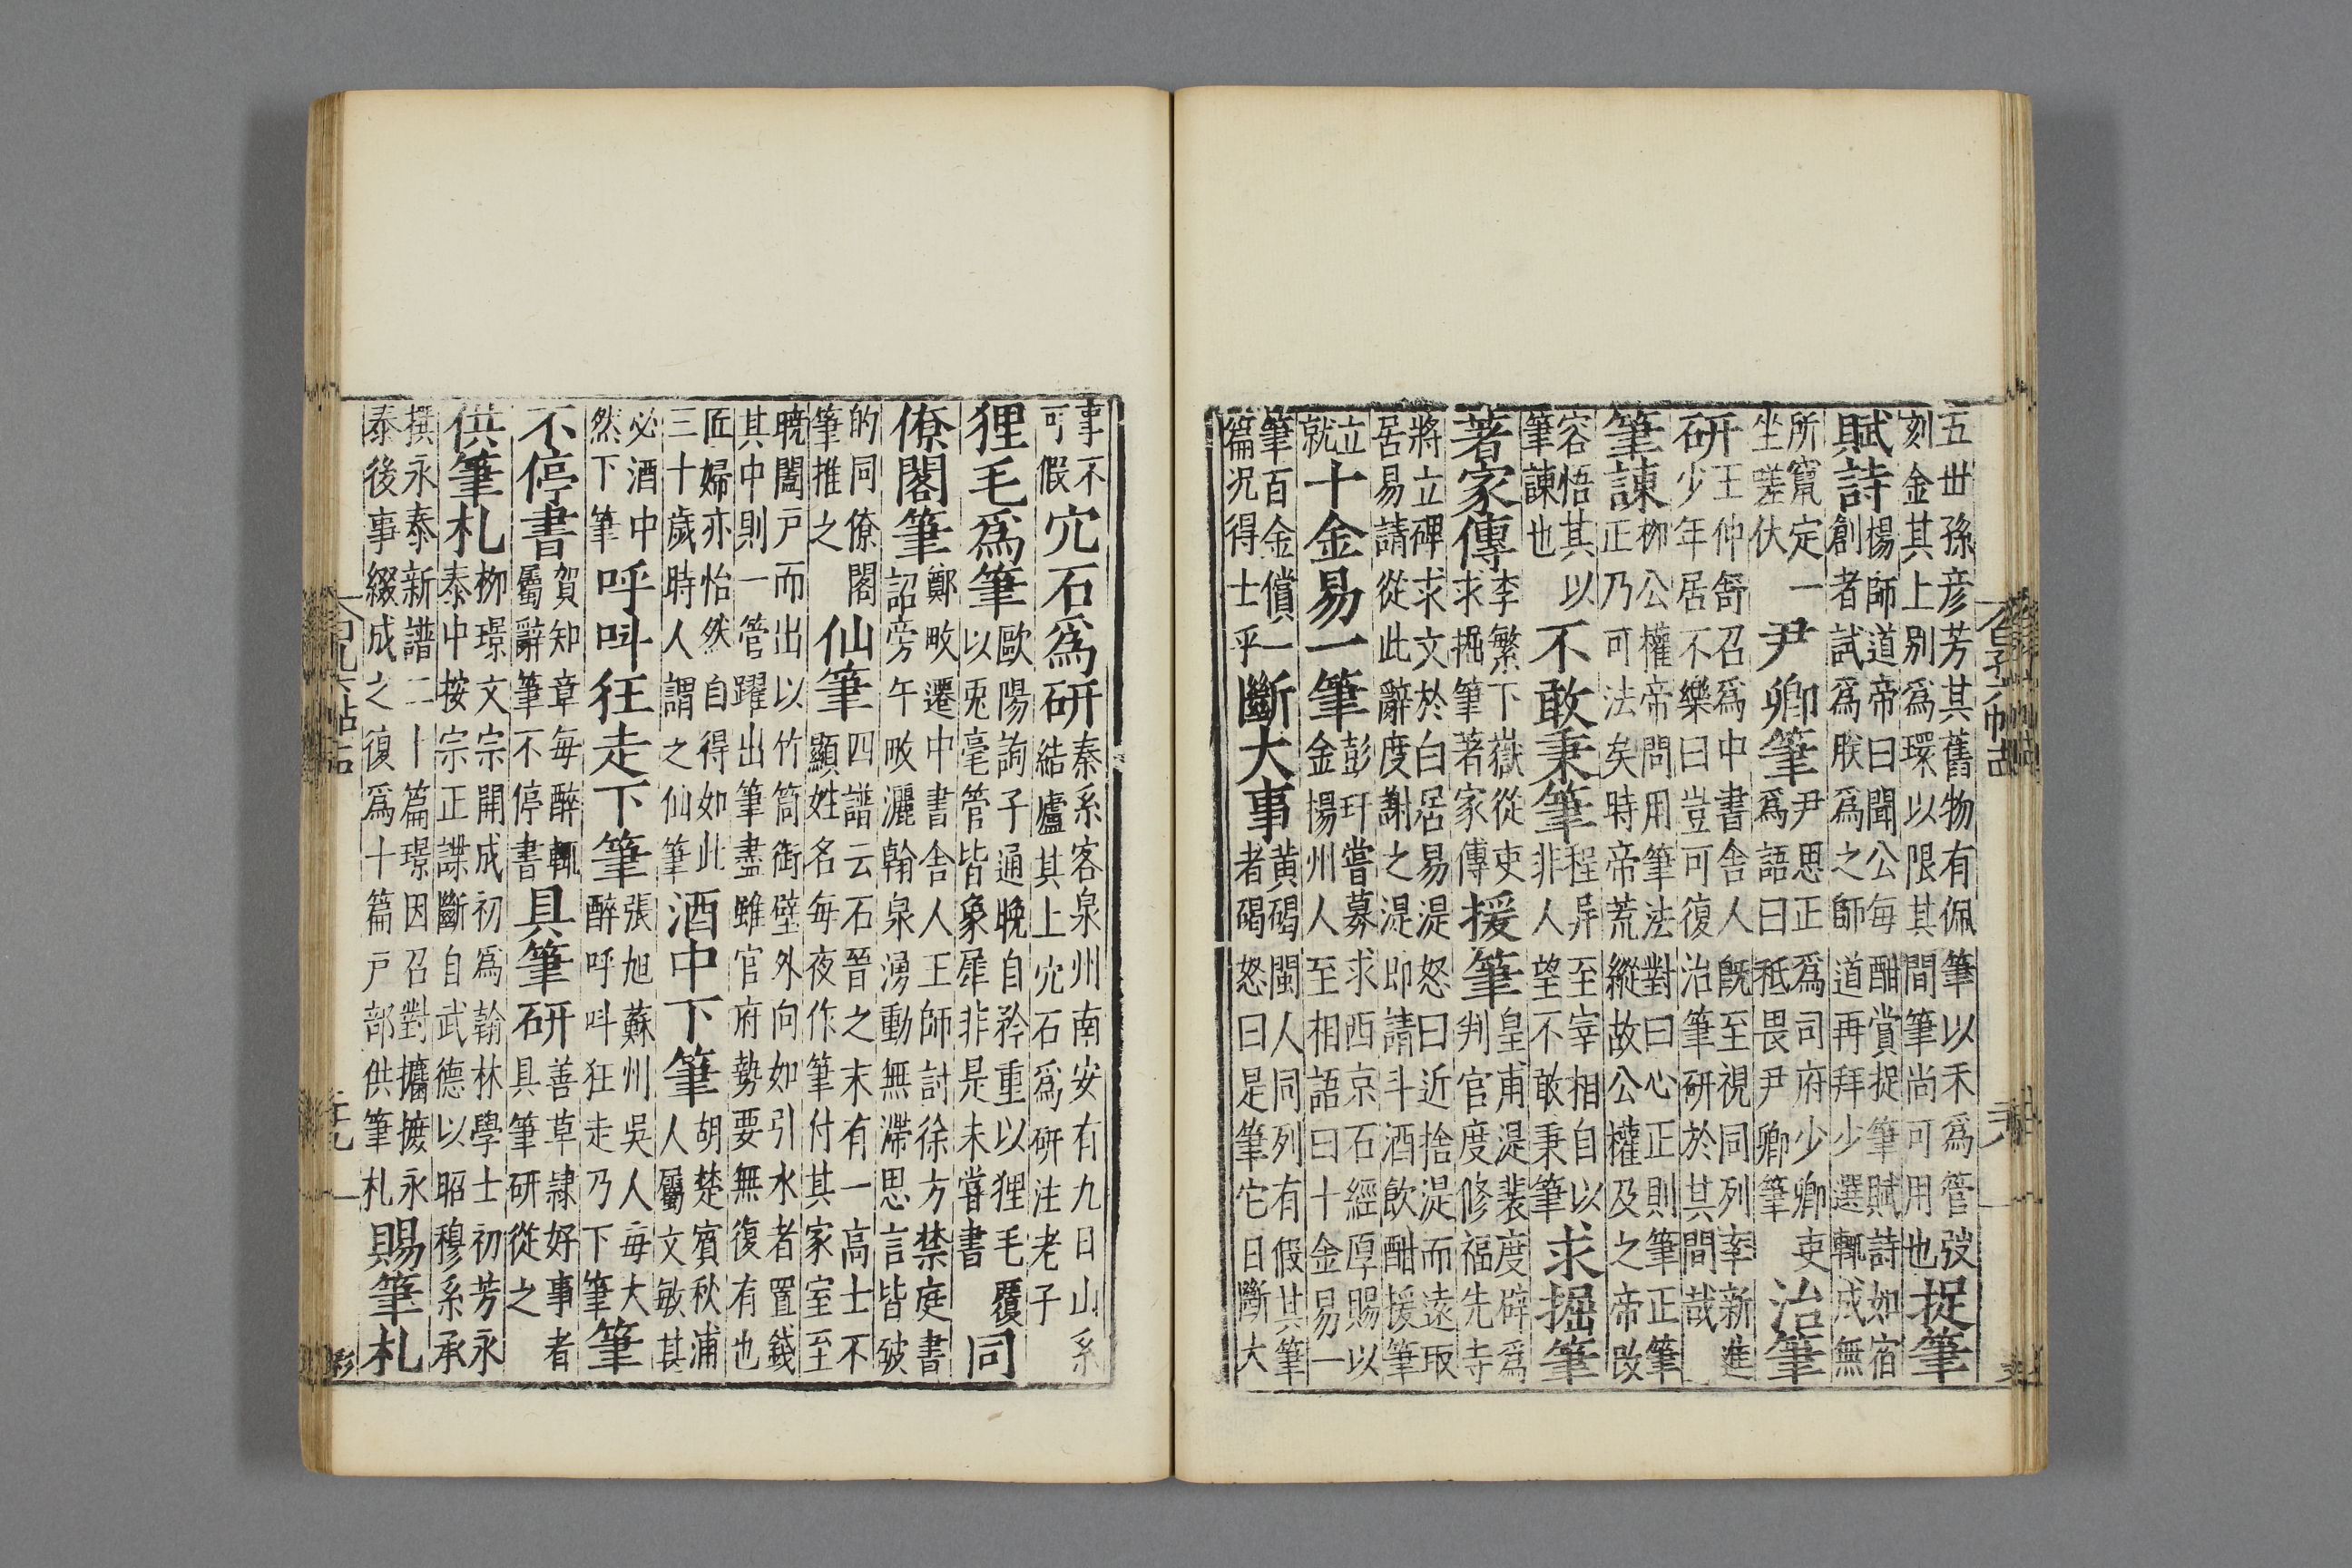 五丗孫彦芳其舊物有佩筆以禾爲管弢
刻金其上别爲環以限其間筆尚可用也
捉筆
賦詩
楊師道帝曰聞公每酣賞捉筆賦詩如宿
創者試爲朕爲之師道再拜少選輒成無
所竄定一
坐嗟伏
尹卿筆
尹思正爲司府少卿吏
爲語曰秖畏尹卿筆
治筆
研
王仲舒召爲中書舍人旣至視同列率新進
少年居不樂曰豈可復治筆研於其間哉
筆諫
柳公權帝問用筆法對曰心正則筆正筆
正乃可法矣時帝荒縱故公權及之帝改
容悟其以
筆諫也
不敢秉筆
程异至宰相自以
非人望不敢秉筆
求掘筆
著家傳
李繁下嶽從吏
求掘筆著家傳
援筆
皇甫湜裴度辟爲
判官度修福先寺
將立碑求文於白居易湜怒曰近捨湜而遠取
居易請從此辭度謝之湜即請斗酒飲酣援筆
立
就
十金易一筆
彭玕嘗募求西京石經厚賜以
金楊州人至相語曰十金易一
筆百金償一
篇况得士乎
斷大事
黄碣閩人同列有假其筆
者碣怒曰是筆它日斷大
事不
可假
穴石爲研
秦系客泉州南安有九日山系
結廬其上穴石爲研注老子
狸毛爲筆
歐陽詢子通晚自矜重以狸毛覆
以兎毫管皆象犀非是未嘗書
同
僚閣筆
鄭畋遷中書舍人王師討徐方禁庭書
詔旁午畋灑翰泉湧動無滯思言皆破
的同僚閣
筆推之
仙筆
四譜云石晉之末有一高士不
顯姓名每夜作筆付其家室至
曉闔戸而出以竹筒衘壁外向如引水者置錢
其中則一管躍出筆盡雖官府勢要無復有也
匠婦亦怡然自得如此
三十歲時人謂之仙筆
酒中下筆
胡楚賓秋浦
人屬文敏甚
必酒中
然下筆
呼呌狂走下筆
張旭蘇州吳人每大
醉呼呌狂走乃下筆
筆
不停書
賀知章每醉輒
屬辭筆不停書
具筆研
善草隷好事者
具筆研從之
供筆札
柳璟文宗開成初爲翰林學士初芳永
泰中按宗正諜斷自武德以昭穆系承
撰永泰新譜二十篇璟因召對攟摭永
泰後事綴成之復爲十篇戸部供筆札
賜筆札